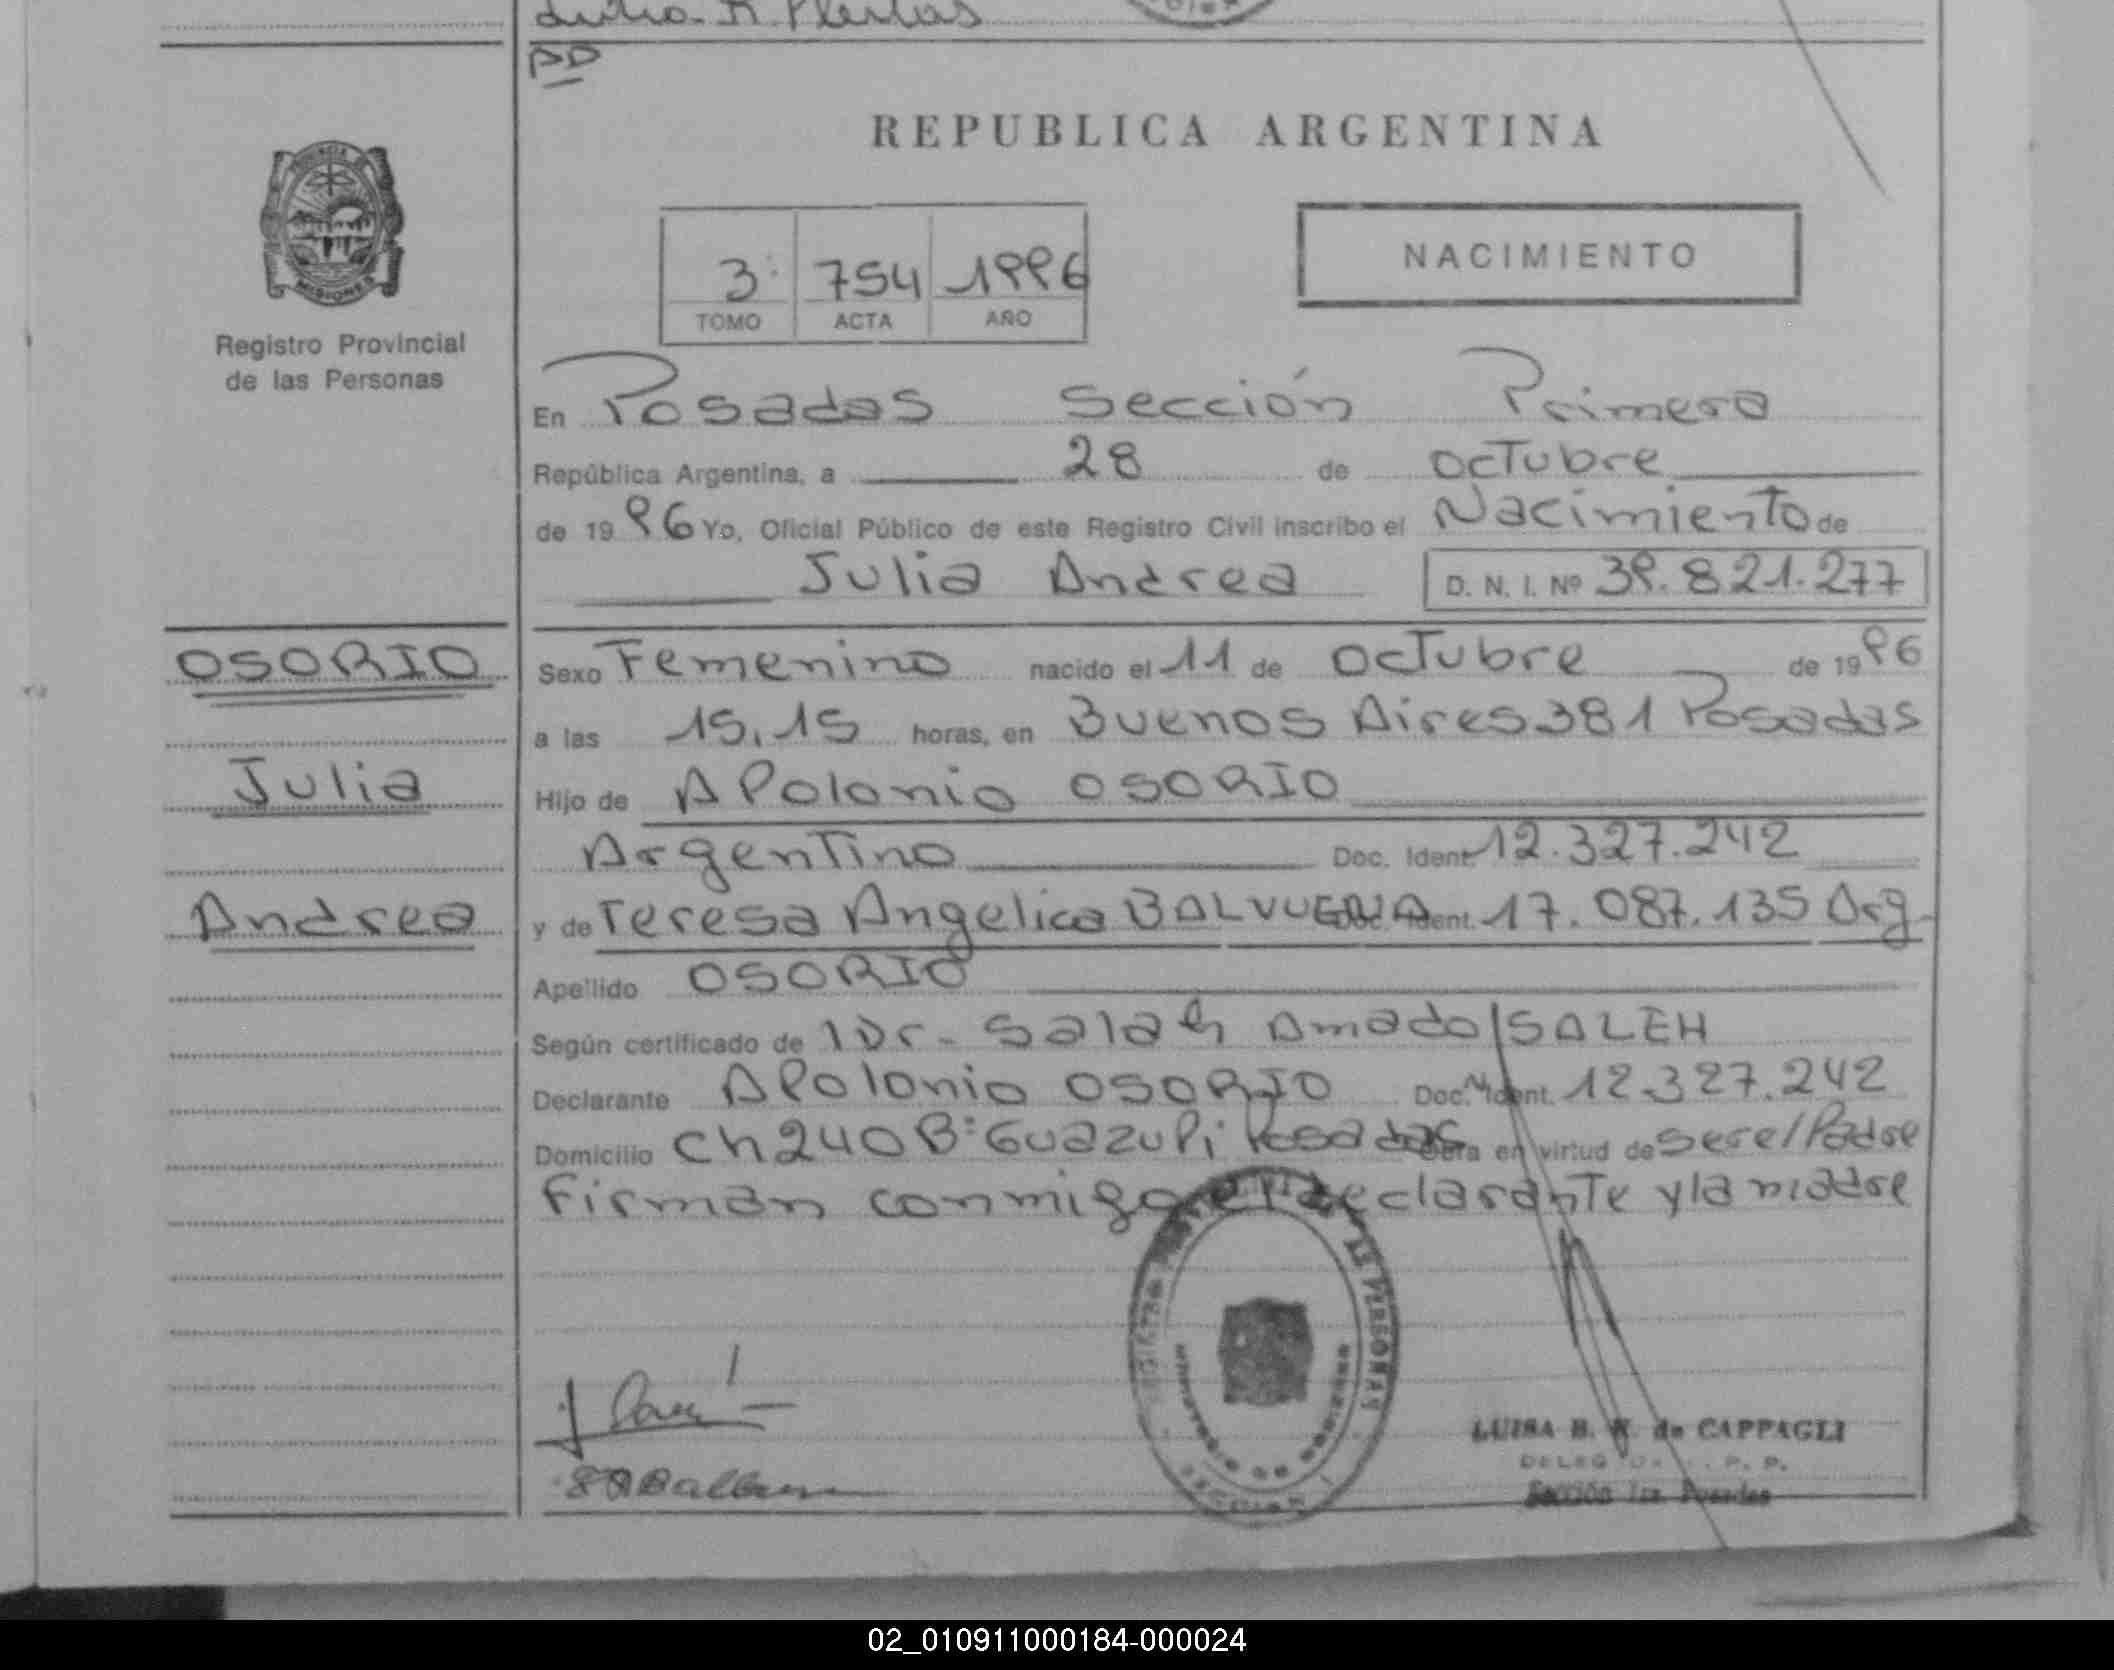 PD
REPUBLICA ARGENTINA
MISIONES
3 754 1996
TOMO ACTA AÑO
NACIMIENTO
Registro Provincial
de las Personas
En Posadas Sección Primera
República Argentina, a 28 de octubre
de 1996 Yo, Oficial Público de este Registro Civil inscribo el Nacimiento de
Julia Andrea D. N. I. Nº 39.821.277
OSORIO
Julia
Andrea
Sexo Femenino nacido el 11 de octubre de 1996
a las 15,15 horas, en Buenos Aires 381 Posadas
Hijo de APolonio OSORIO
Argentino Doc. Ident. 12.327.242
y de Teresa Angelica BALVUENA Doc. Ident. 17.087.135 Arg.
Apellido OSORIO
Según certificado de Dr. Salah Amado SALEH
Declarante APolonio OSORIO Doc. N. Ident. 12.327.242
Domicilio Ch 240 Bº Guazupi Posadas Obra en virtud de ser el Padre
Firman conmigo el declarante y la madre
DE LAS PERSONAS
LUISA B. de CAPPAGLI
Sección 1ra. Posadas
02_010911000184-000024